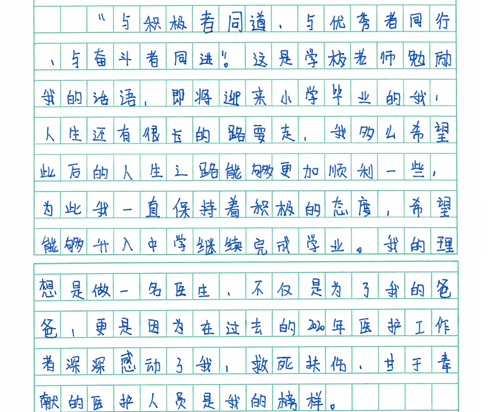 “与积极者同道、与优秀者同行
、与奋斗者同进”。这是学校老师勉励
我的话语，即将迎来小学毕业的我，
人生还有很长的路要走，我多么希望
此后的人生之路能够更加顺利一些，
为此我一直保持着积极的态度，希望
能够升入中学继续完成学业。我的理
想是做一名医生，不仅是为了我的爸
爸，更是因为在过去的2020年医护工作
者深深感动了我，救死扶伤，甘于奉
献的医护人员是我的榜样。